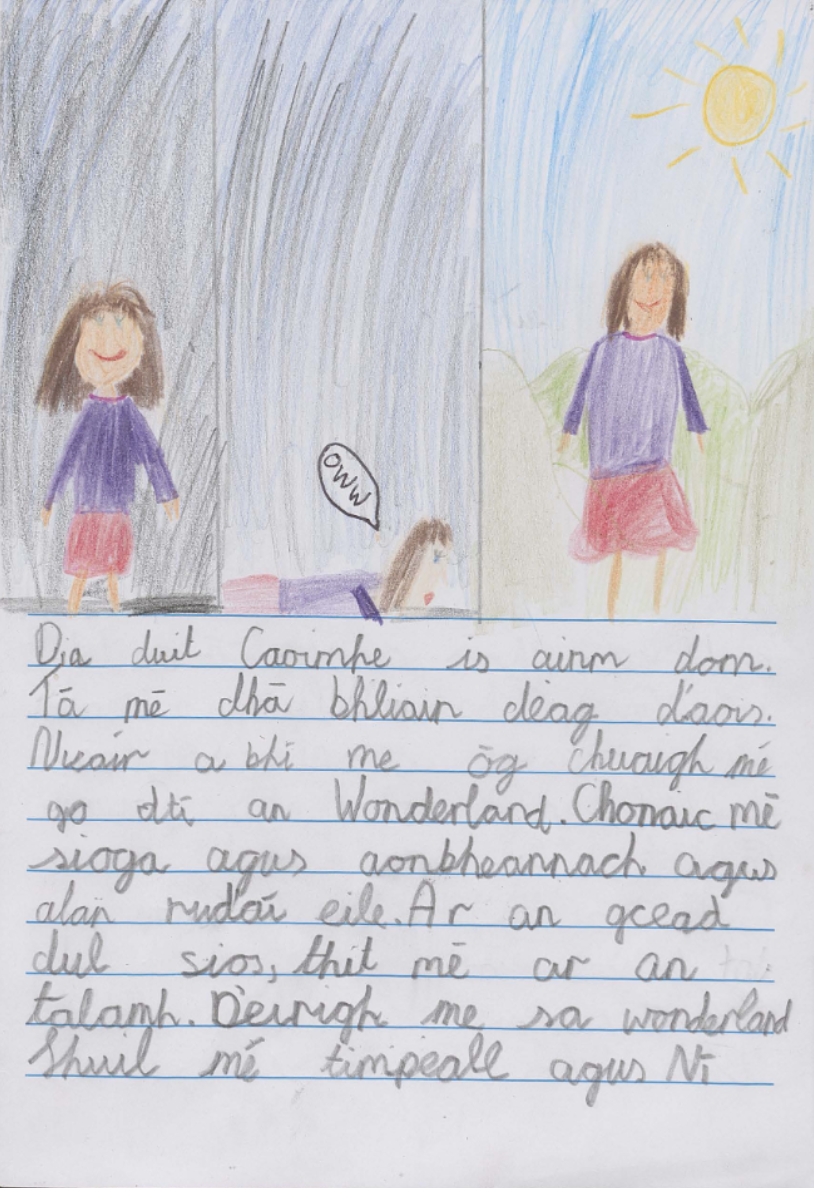 OWW
Dia duit Caoimhe is ainm dom.
Tā mē dhā bhliain dēag d'aois.
Nuair a bhī me ōg chuaigh mé
go dtī an Wonderland. Chonaic mē
sioga agus aonbheannach agus
alan rudaī eile. Ar an gcead
dul sios, thit mē ar an
talamh. D'eirigh me sa wonderland
Shuil mé timpeall agus Nī